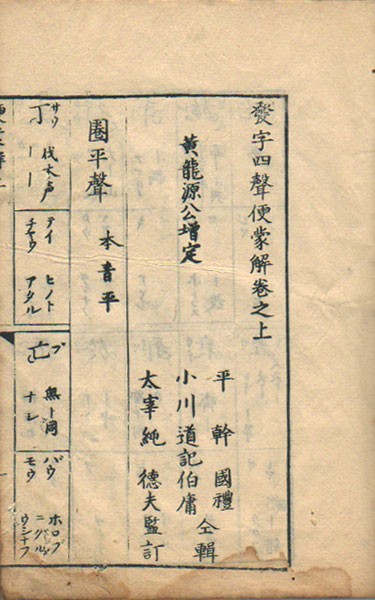 發字四聲便蒙解卷之上
黃龍源公增定
平 幹 國禮
小川 道記伯庸 仝輯
太宰 純 德夫監訂
圈平聲 本音平
丁 サウ 丁丁 伐木声
テイ チヤウ ヒノト アタル
亡 ブ 無ト同 ナシ
バウ モウ ホロブ ニグル ウシナフ